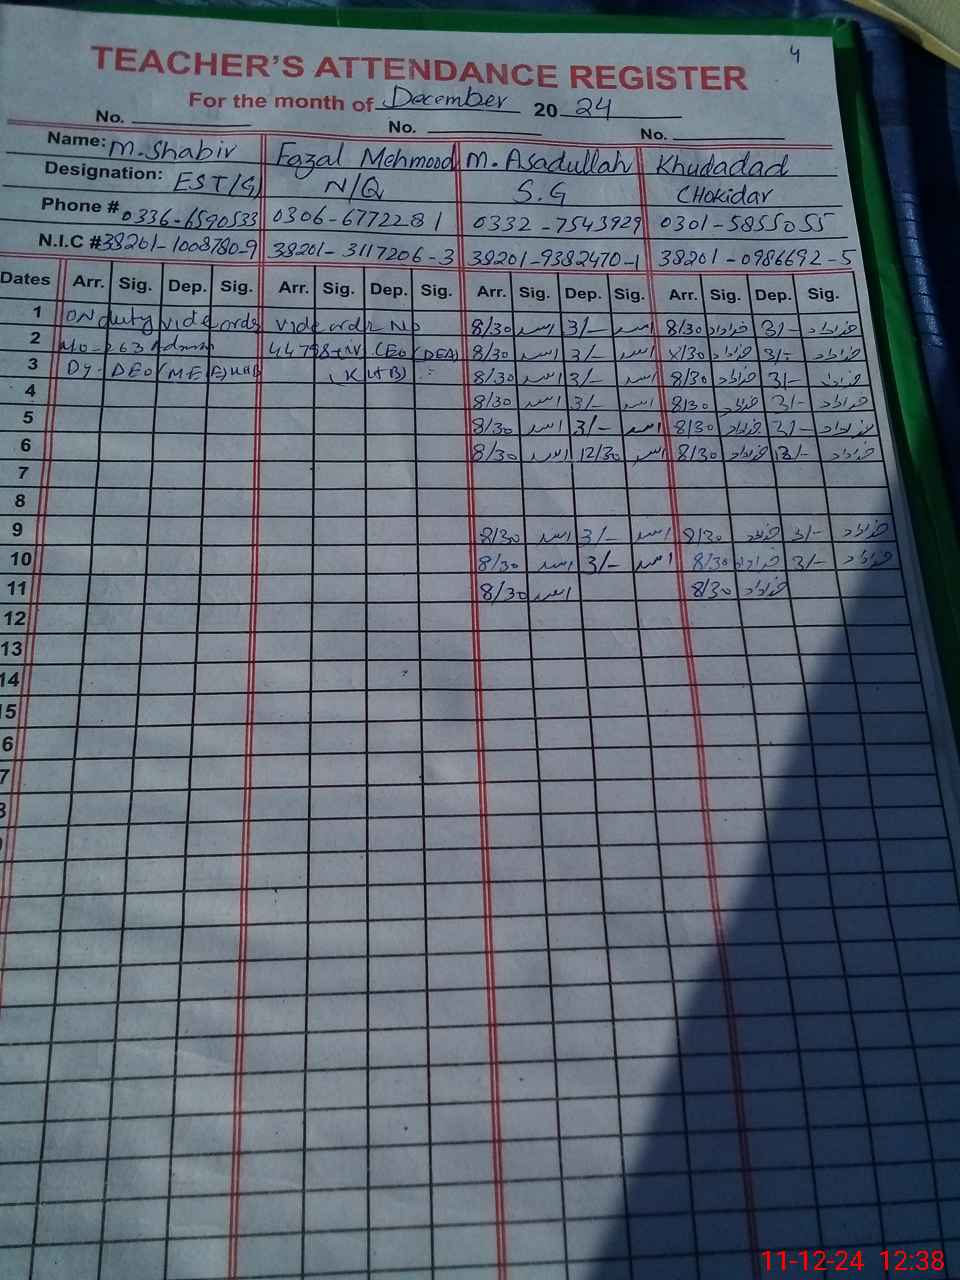 4
TEACHER'S ATTENDANCE REGISTER
For the month of December 20 24
No. No. No.
Name: M. Shabir Fazal Mehmood M. Asadullah Khudadad
Designation: EST/G N/Q S.G CHOKidar
Phone # 0336-6590533 0306-6772281 0332-7543929 0301-5855055
N.I.C # 38201-1008780-9 38201-3117206-3 38201-9382470-1 38201-0986692-5
Dates Arr. Sig. Dep. Sig. Arr. Sig. Dep. Sig. Arr. Sig. Dep. Sig. Arr. Sig. Dep. Sig.
1 ON duty vide vide No 8/30 اسد 3/- اسد 8/30 خداداد 3/- خداداد
2 263 Admin CEO (DEA) 8/30 اسد 3/- اسد 8/30 خداداد 3/- خداداد
3 Dy. DEO (KHB) 8/30 اسد 3/- اسد 8/30 خداداد 3/- خداداد
4 8/30 اسد 3/- اسد 8/30 خداداد 3/- خداداد
5 8/30 اسد 3/- اسد 8/30 خداداد 3/- خداداد
6 8/30 اسد 12/30 اسد 8/30 خداداد خداداد
7
8
9 8/30 اسد 3/- اسد 8/30 خداداد 3/- خداداد
10 8/30 اسد 3/- اسد 8/30 خداداد 3/- خداداد
11 8/30 اسد 8/30 خداداد
12
13
14
15
6
7
11-12-24 12:38